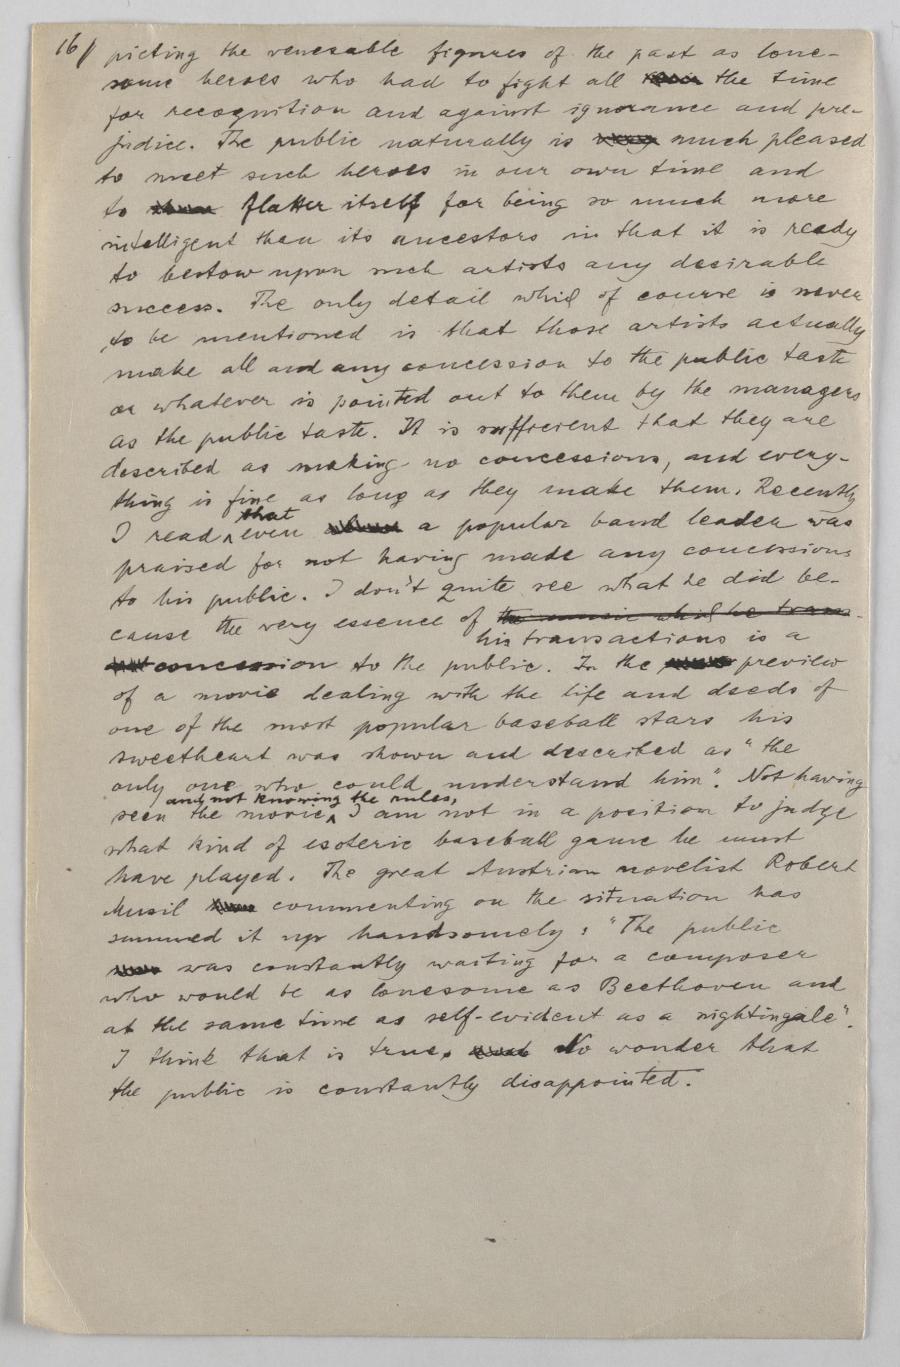 16/ picting the venerable figures of the past as lone-
some heroes who had to fight all the time
for recognition and against ignorance and pre-
judice. The public naturally is very much pleased
to meet such heroes in our own time and
to flatter itself for being so much more
intelligent than its ancestors in that it is ready
to bestow upon such artists any desirable
success. The only detail which of course is never
to be mentioned is that those artists actually
make all and any concession to the public taste
or whatever is pointed out to them by the managers
as the public taste. It is sufficient that they are
described as making no concessions, and every-
thing is fine as long as they make them. Recently
that
I read even a popular band leader was
praised for not having made any concessions
to his public. I don't quite see what he did be-
cause the very essence of the music which he trans-
his transactions is a
concession to the public. In the preview
of a movie dealing with the life and deeds of
one of the most popular baseball stars his
sweetheart was shown and described as "the
only one who could understand him". Not having
and not knowing the rules,
seen the movie, I am not in a position to judge
what kind of esoteric baseball game he must
have played. The great Austrian novelist Robert
Musil commenting on the situation has
summed it up handsomely: "The public
was constantly waiting for a composer
who would be as lonesome as Beethoven and
at the same time as self-evident as a nightingale".
I think that is true. No wonder that
the public is constantly disappointed.